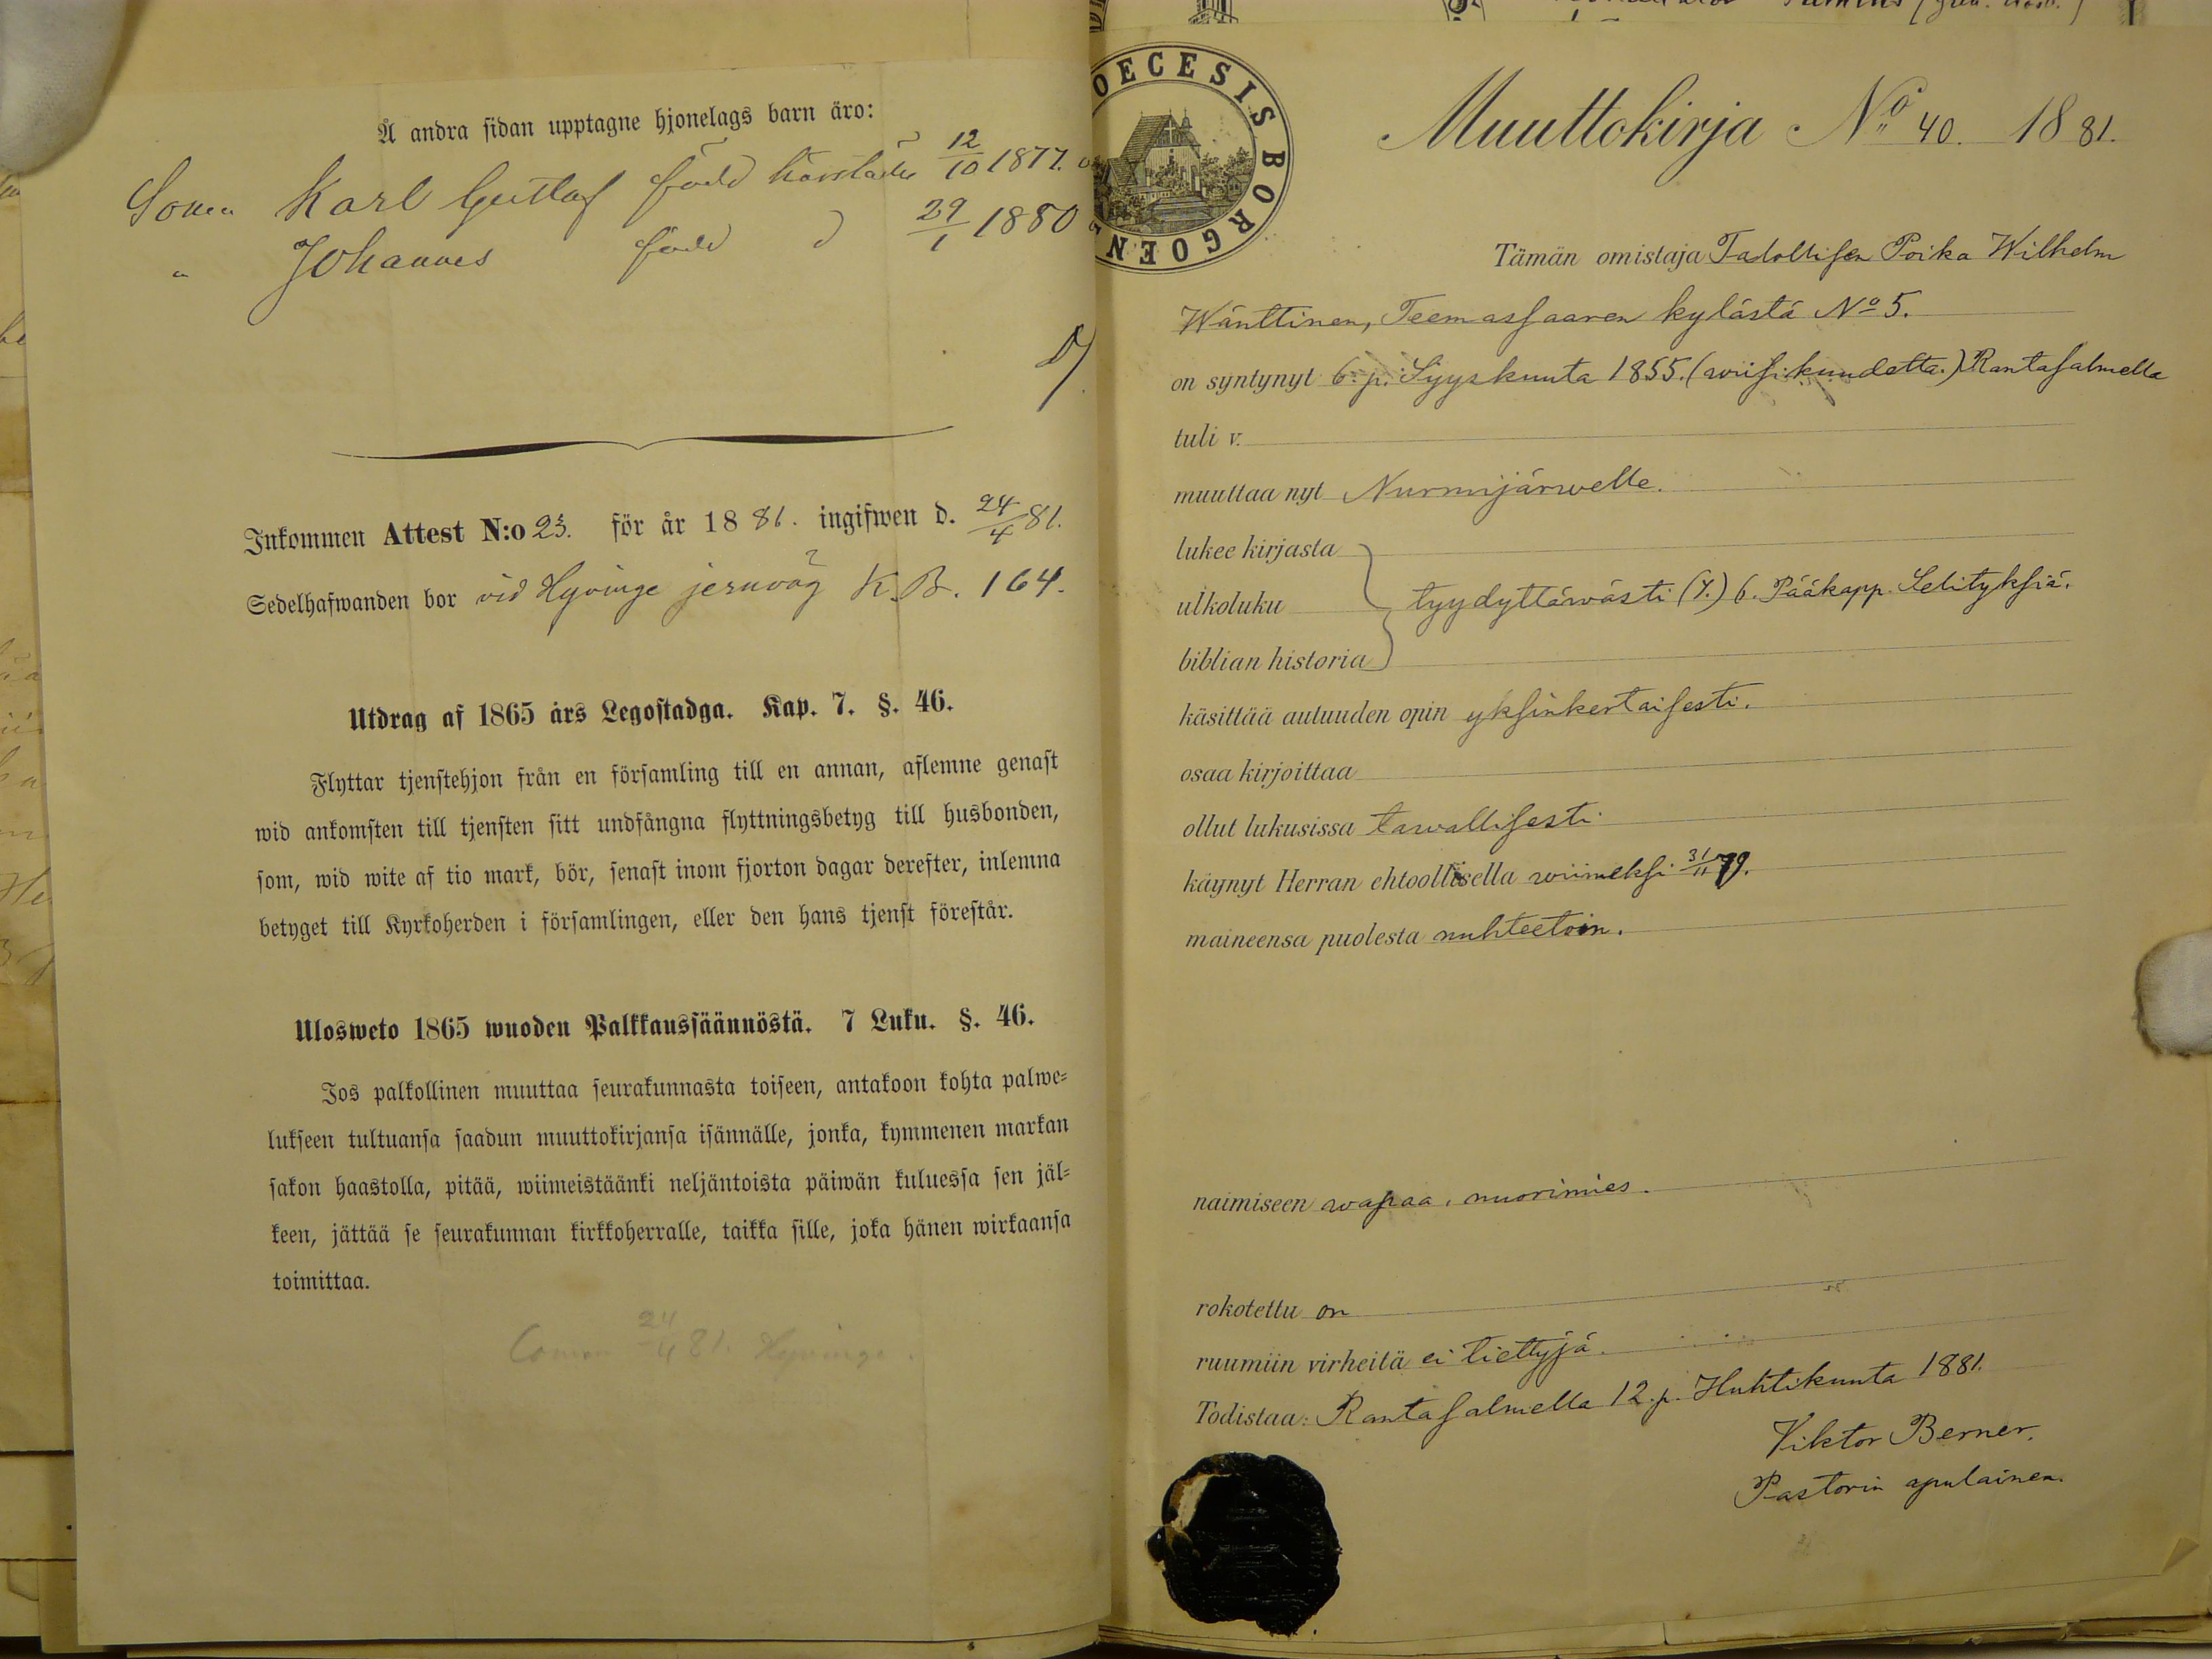 Å andra sidan upptagne hjonelags barn äro:
Sonen Karl Gustaf född härstädes 12/10 1877.
" Johannes född d 29/1 1880
Inkommen Attest N:o 23. för år 1881. ingifwen d. 24/4 81.
Sedelhafwanden bor vid Hyvinge jernväg K.B. 164.
Utdrag af 1865 års Legostadga. Kap. 7. §. 46.
Flyttar tjenstehjon från en församling till en annan, aflemne genast
wid ankomsten till tjensten sitt undfångna flyttningsbetyg till husbonden,
som, wid wite af tio mark, bör, senast inom fjorton dagar derefter, inlemna
betyget till Kyrkoherden i församlingen, eller den hans tjenst förestår.
Ulosweto 1865 wuoden Palkkaussäännöstä. 7 Luku. §. 46.
Jos palkollinen muuttaa seurakunnasta toiseen, antakoon kohta palwe-
lukseen tultuansa saadun muuttokirjansa isännälle, jonka, kymmenen markan
sakon haastolla, pitää, wiimeistäänki neljäntoista päiwän kuluessa sen jäl-
keen, jättää se seurakunnan kirkkoherralle, taikka sille, joka hänen wirkaansa
toimittaa.
24/4 81. Hyvinge.
OECESIS BORGOEN
Muuttokirja No 40. 1881.
Tämän omistaja Talollisen Poika Wilhelm
Wänttinen, Teemassaaren kylästä No 5.
on syntynyt 6. p. Syyskuuta 1855. (wiisikuudetta.) Rantasalmella
tuli v.
muuttaa nyt Nurmijärwelle.
lukee kirjasta
ulkoluku tyydyttäwästi 6. Pääkapp. Selityksiä.
biblian historia
käsittää autuuden opin yksinkertaisesti.
osaa kirjoittaa
ollut lukusissa tawallisesti.
käynyt Herran ehtoollisella wiimeksi 31/11 79.
maineensa puolesta nuhteetoin.
naimiseen wapaa, nuorimies.
rokotettu on
ruumiin virheitä ei tiettyjä.
Todistaa: Rantasalmella 12. p. Huhtikuuta 1881.
Viktor Berner.
Pastorin apulainen.